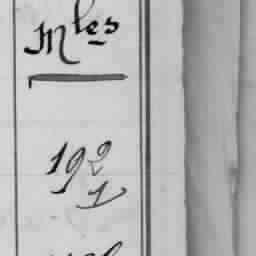 Mles
192
1